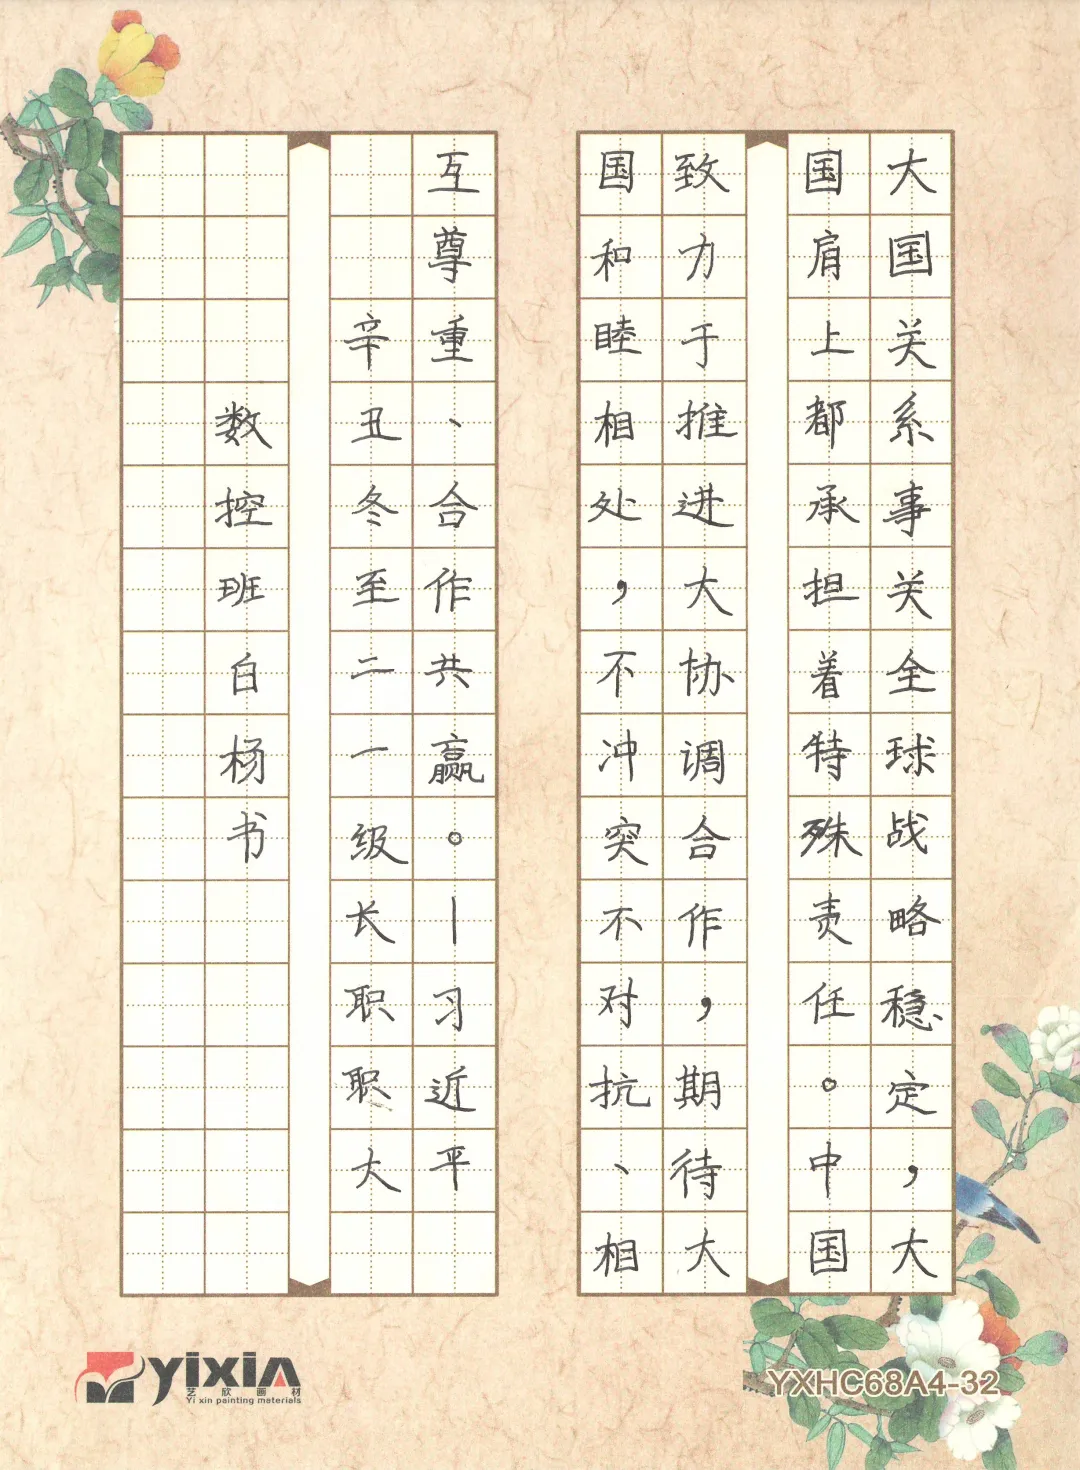 大国关系事关全球战略稳定，大
国肩上都承担着特殊责任。中国
致力于推进大协调合作，期待大
国和睦相处，不冲突不对抗、相
互尊重、合作共赢。—习近平
辛丑冬至二一级长职职大
数控班白杨书
yixin
艺欣画材
Yi xin painting materials
YXHC68A4-32